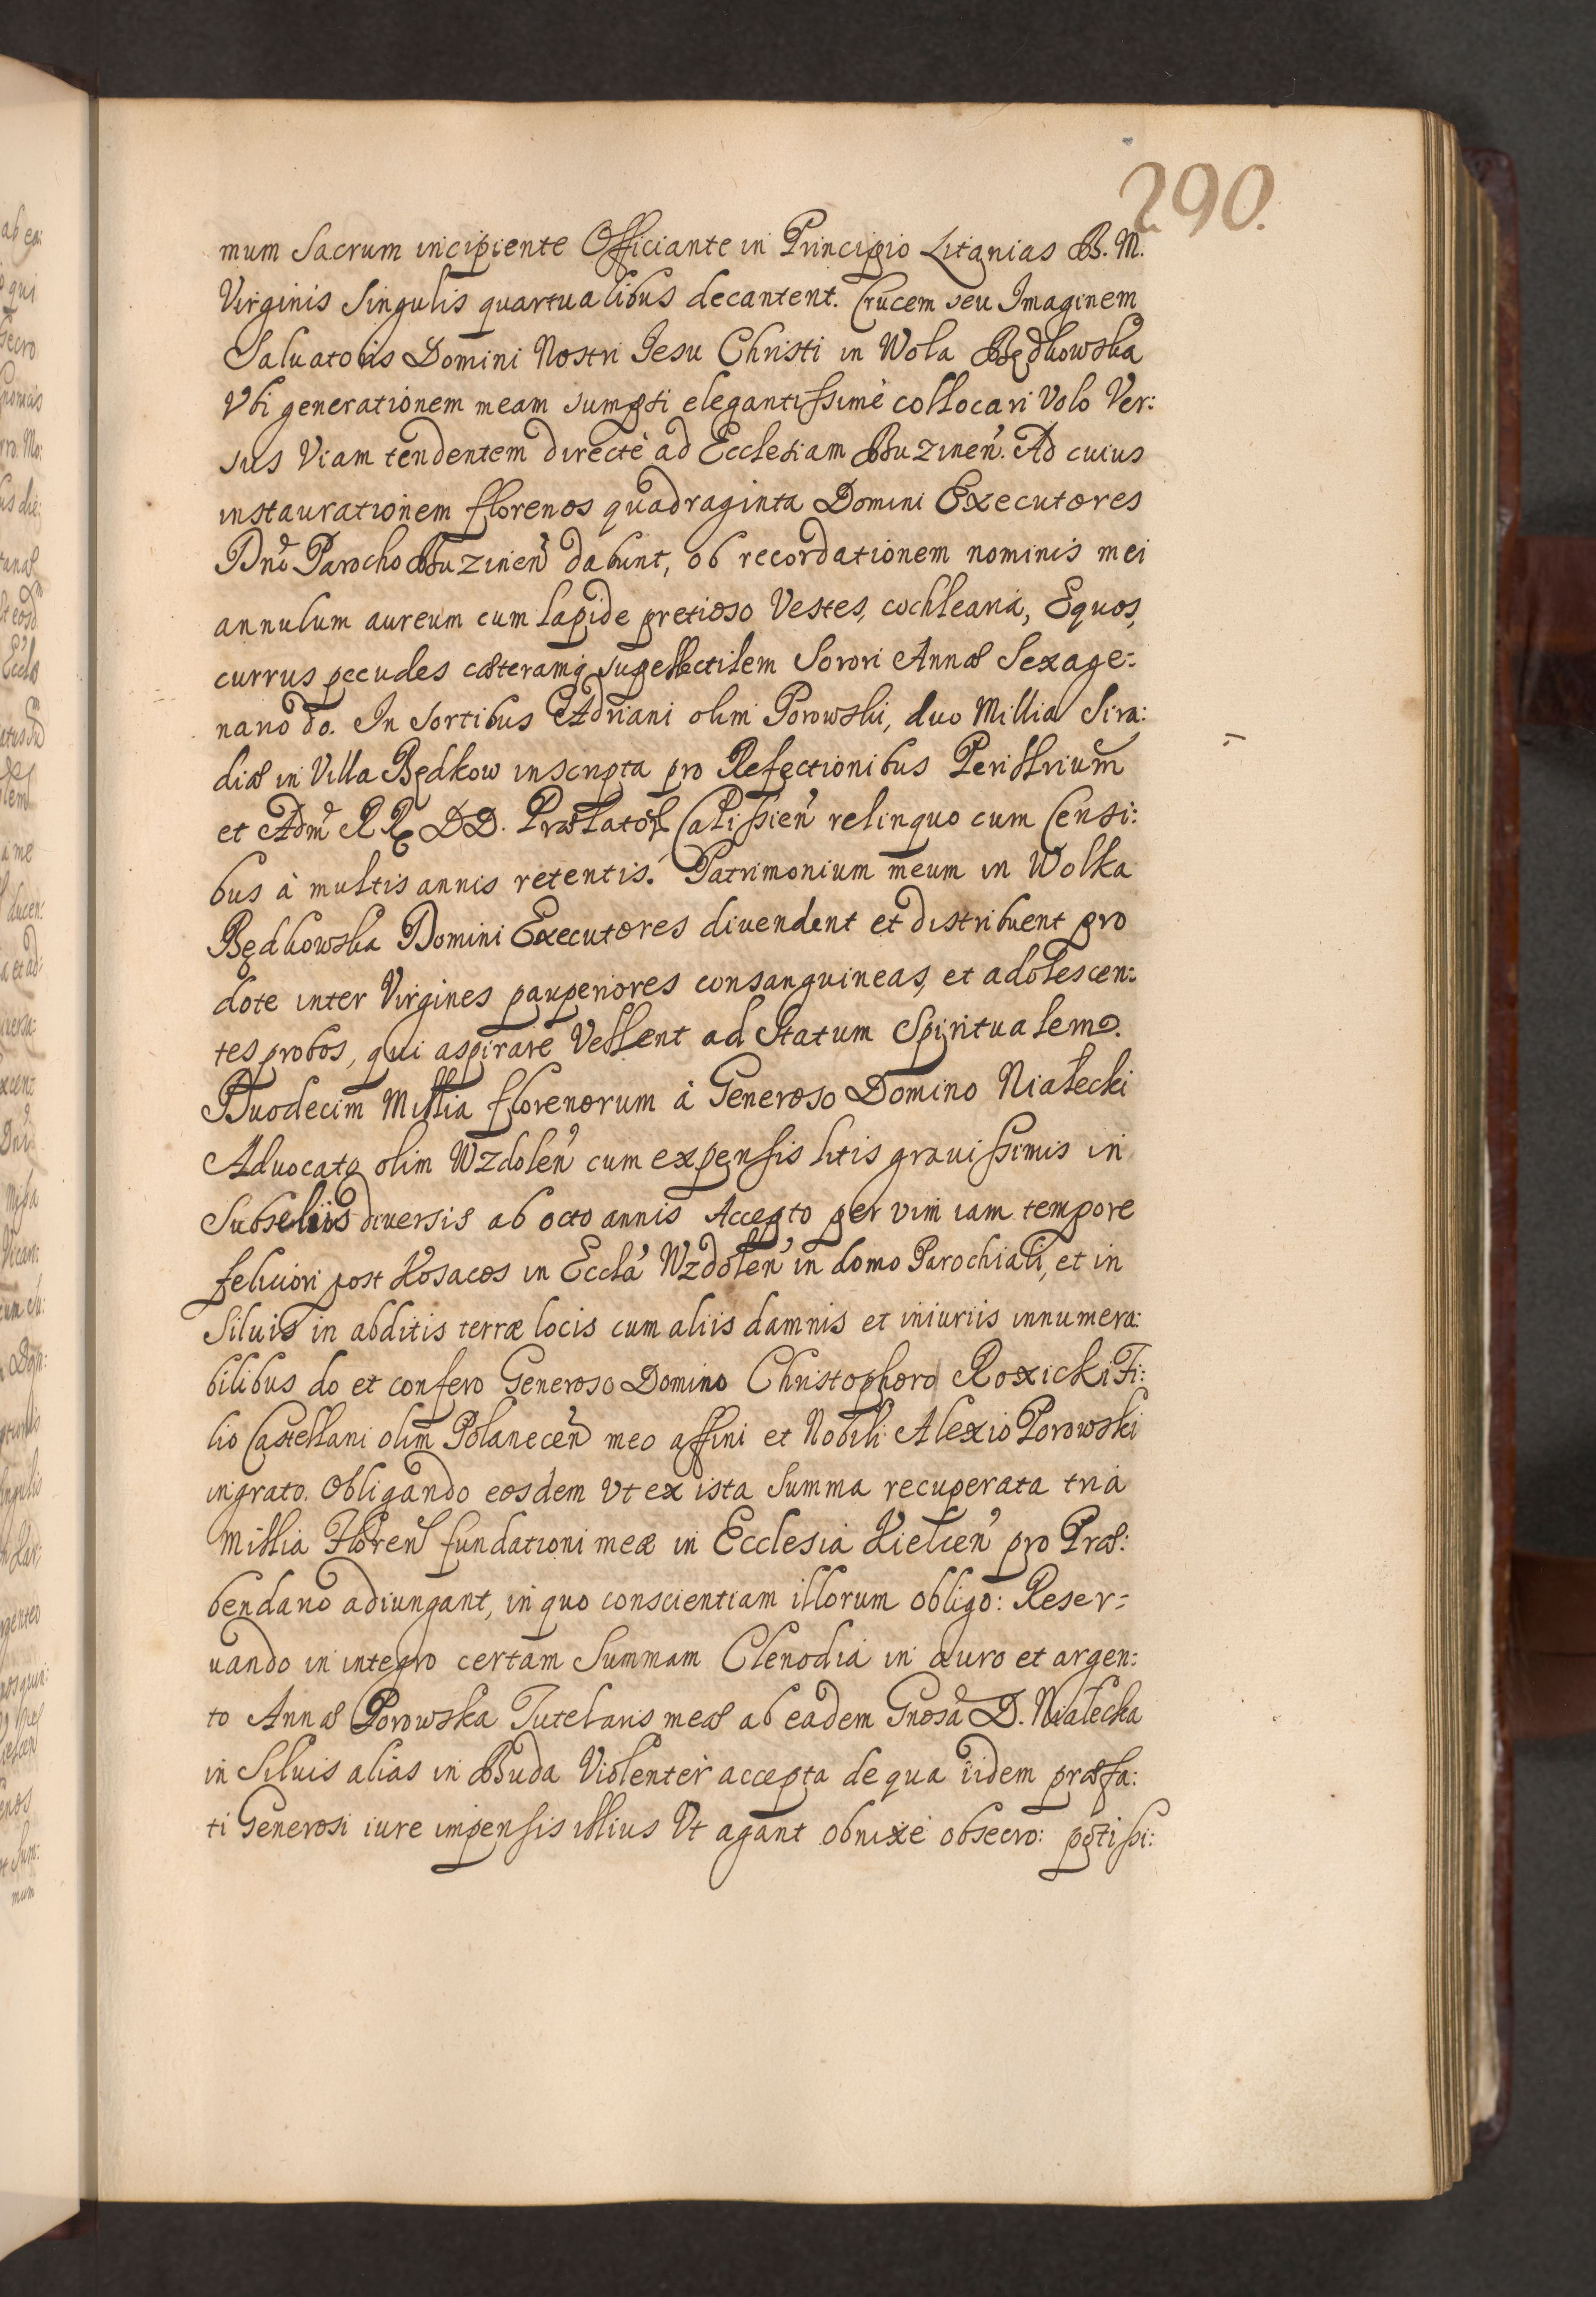 290.
mum Sacrum incipiente Officiante in Principio Litanias B. M.
Virginis Singulis quartualibus decantent. Crucem seu Imaginem
Saluatoris Domini Nostri Jesu Christi in Wola Będkowska
Vbi generationem meam sumpsi elegantissimè collocari Volo Ver:
sus Viam tendentem directè ad Ecclesiam Buzinen̄. Ad cuius
instaurationem florenos quadraginta Domini Executores
Dnō Parocho Buzinen̄ dabunt, ob recordationem nominis mei
annulum aureum cum lapide pretioso Vestes, cochlearia, Equos,
currus pecudes cæteramq́ supellectilem Sorori Annæ Sexage:
nario do. In Sortibus Adriani olim Porowski, duo Millia Sira:
diæ in Villa Będkow inscripta pro Refectionibus
et Adm̄ RR DD. Prælator Calissien̄ relinquo cum Censi:
bus à multis annis retentis. Patrimonium meum in Wolka
Będkowska Domini Executores divendent et distribuent pro
dote inter Virgines pauperiores consanguineas, et adolescen:
tes probos, qui aspirare Vellent ad Statum Spiritualem.
Duodecim Millia florenorum à Generoso Domino Niałecki
Advocato olim Wzdolen̄ cum expensis litis gravissimis in
Subseliis diversis ab octo annis Accepto per vim iam tempore
feliciori post Kosacos in Eccla̅ Wzdolen̄ in domo Parochiali, et in
Siluis in abditis terræ locis cum aliis damnis et iniuriis innumera:
bilibus do et confero Generoso Domino Christophoro Roxicki Fi:
lio Castellani olim Połanecen̄ meo affini et Nobili Alexio Porowski
ingrato. Obligando eosdem Vt ex ista Summa recuperata tria
Millia Floren̄ fundationi meæ in Ecclesia Kielcen̄ pro Præ:
bendario adiungant, in quo conscientiam illorum obligo: Reser:
uando in integro certam Summam Clenodia in auro et argen:
to Annæ Porowska Tutelaris meæ ab eadem Gn̄osa D. Niałecka
in Siluis alias in Buda Violenter accepta de qua iidem præfa:
ti Generosi iure impensis illius Vt agant obnixè obsecro: potissi: